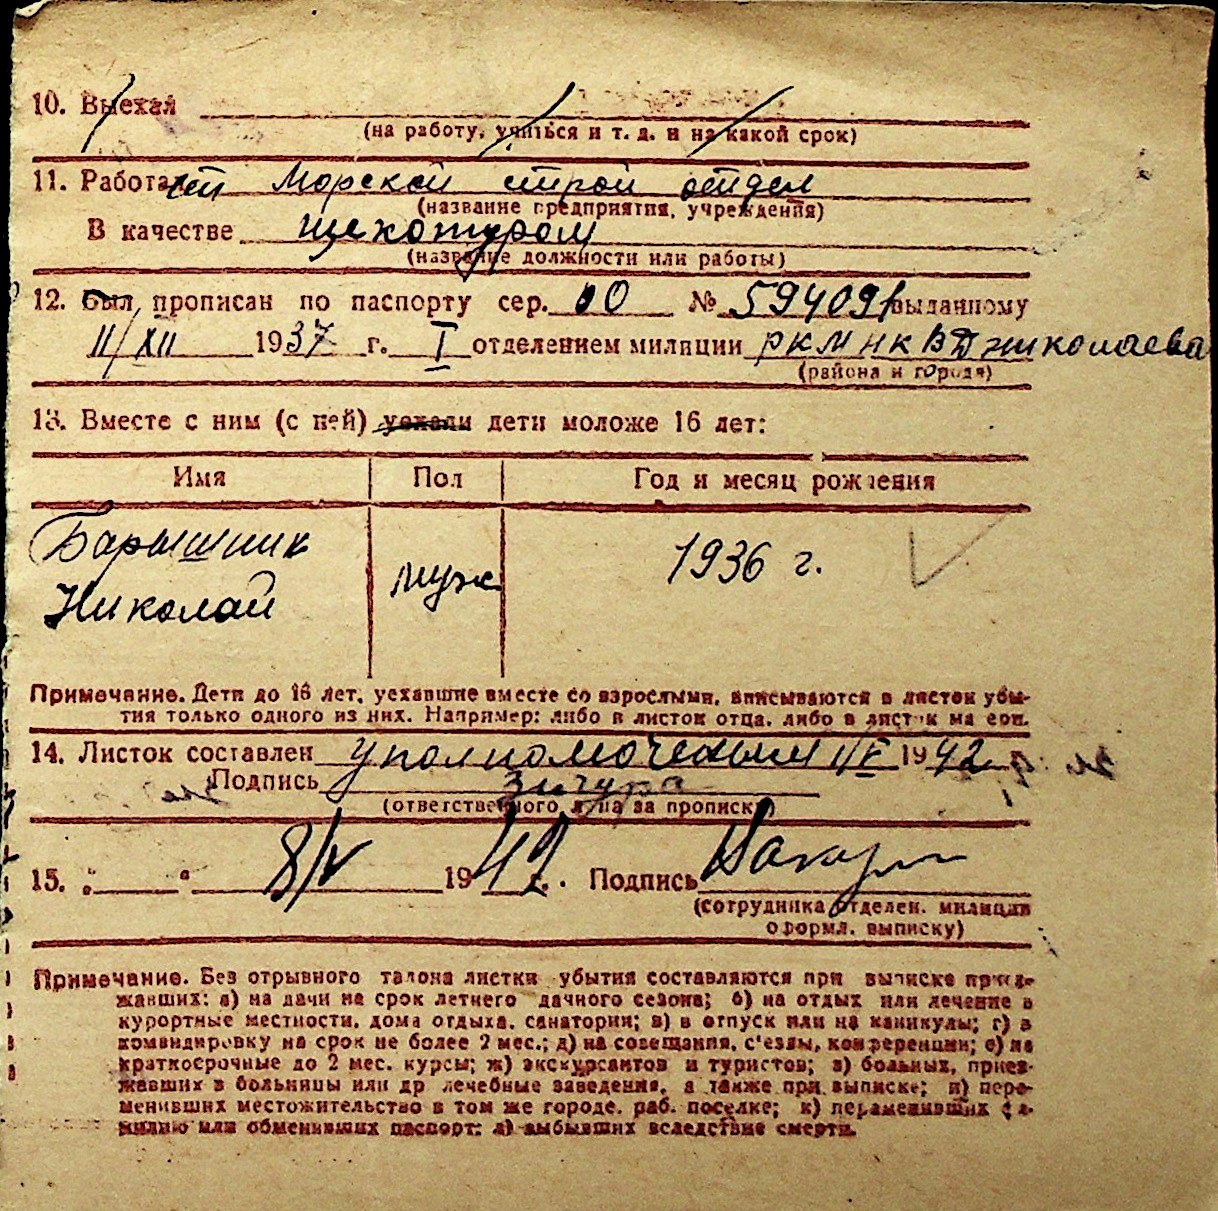 10. Выехал
(на работу, учиться и т. д. и на какой срок)
11. Работает Морской строй отдел
(название предприятия, учреждения)
В качестве щекотуром
(название должности или работы)
12. Был прописан по паспорту сер. 00 № 594091 выданному
11/XII 1937 г. I отделением милиции РКМ НКВД Николаева
(района и города)
13. Вместе с ним (с ней) уехали дети моложе 16 лет:
Имя Пол Год и месяц рождения
Барышник
Николай муж 1936 г.
Примечание. Дети до 16 лет, уехавшие вместе со взрослыми, вписываются в листок убы-
тия только одного из них. Например: либо в листок отца, либо в листок матери.
14. Листок составлен уполномоченым 1942
Подпись
(ответственного лица за прописку)
15. „ “ 8/V 1942 г. Подпись
(сотрудника отделен. милиции
оформл. выписку)
Примечание. Без отрывного талона листки убытия составляются при выписке приез-
жавших: а) на дачи на срок летнего дачного сезона; б) на отдых или лечение в
курортные местности, дома отдыха, санатории; в) в отпуск или на каникулы; г) в
командировку на срок не более 2 мес.; д) на совещания, с'езды, конференции; е) на
краткосрочные до 2 мес. курсы; ж) экскурсантов и туристов; з) больных, приез-
жавших в больницы или др лечебные заведения, а также при выписке; и) пере-
менивших местожительство в том же городе, раб. поселке; к) переменивших фа-
милию или обменивших паспорт; л) выбывших вследствие смерти.